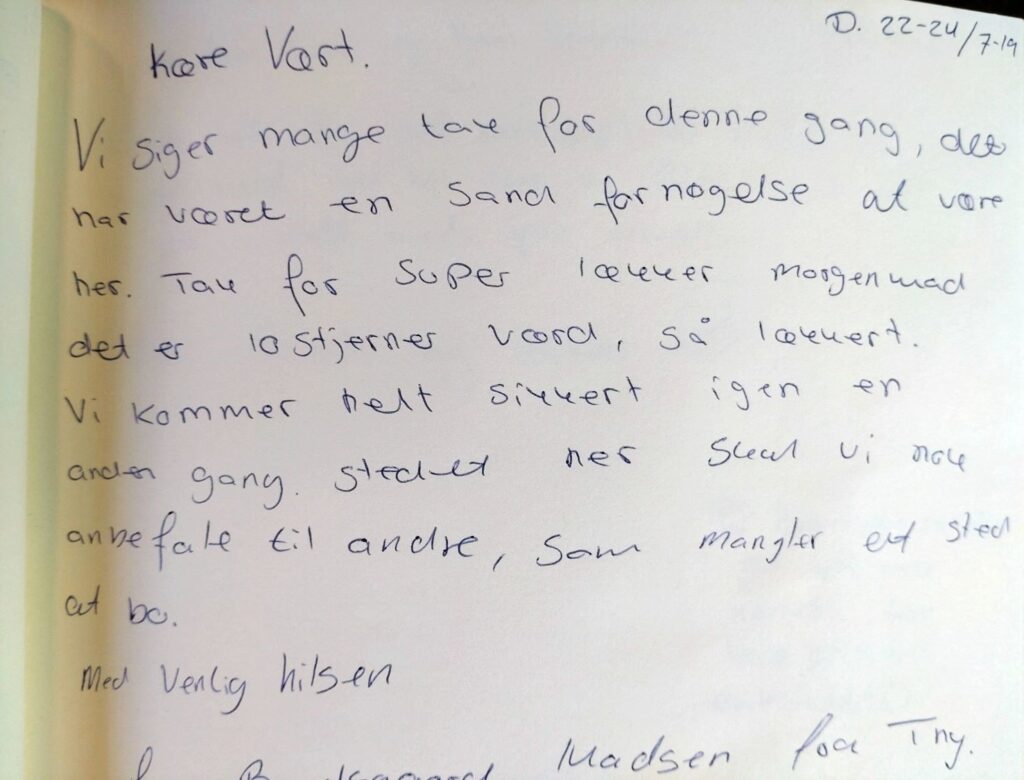 D. 22-24/7-19
Kære Vært.
Vi siger mange tak for denne gang, det
har været en sand fornøgelse at være
her. Tak for super lækker morgenmad
det er 10 stjerner værd, så lækkert.
Vi kommer helt sikkert igen en
anden gang. stedet her skal vi nok
anbefale til andre, som mangler et sted
at bo.
Med venlig hilsen
Madsen fra Thy.